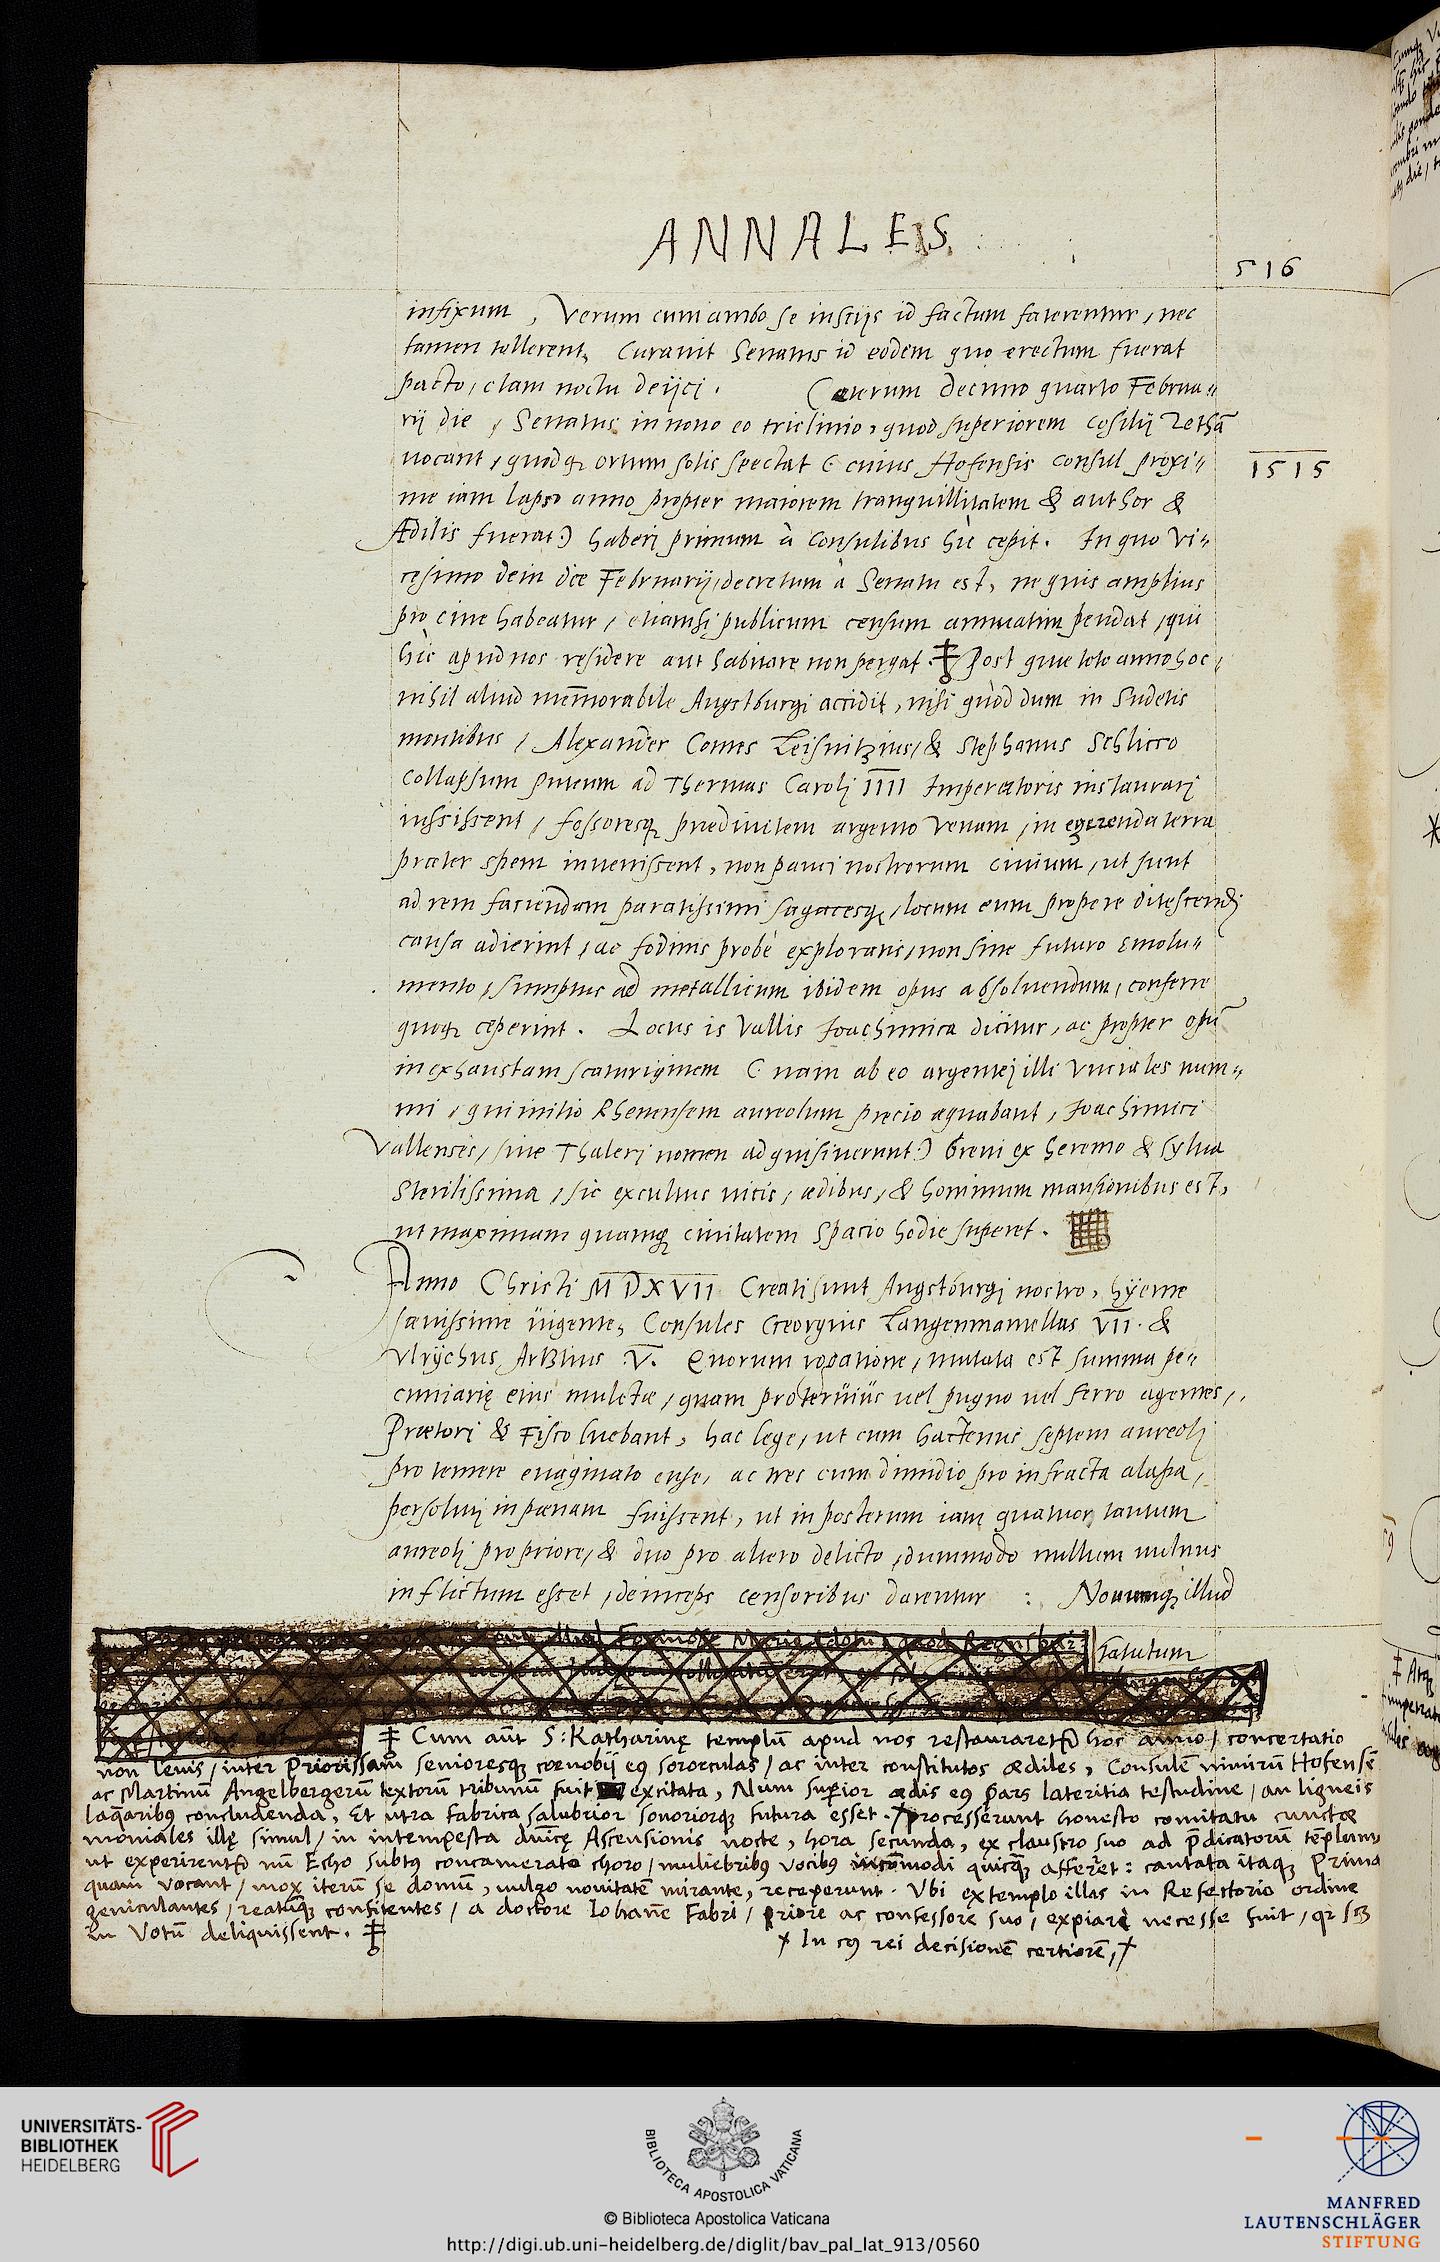 ANNALES
516
infixum, Verum cum ambo se insciis id factum faterentur, nec
tamen tollerent, Curavit Senatus id eodem quo erectum fuerat
pacto, clam noctu deijci. Cæterum decimo quarto Februa„
rij die, Senatus in novo eo triclinio, quod superiorem cōsilij Zethā
vocant, quodq; ortum solis spectat (: cuius Hofensis consul proxi„
1515
me iam lapso anno propter maiorem tranquillitatem & author &
Ædilis fuerat:) haberi primum à Consulibus hic cępit. In quo vi„
cesimo dein die Februarij, decretum à Senatu est, ne quis amplius
pro cive habeatur, etiamsi publicum censum annuatim pendat, qui
hic apud nos residere aut habitare non pergat. Post quę toto anno hoc,
nihil aliud mem̄orabile Augstburgi accidit, nisi quòd dum in Sudetis
montibus, Alexander Comes Leisnitzius, & Stephanus Schlicco
collapsum puteum ad Thermas Caroli IIII Imperatoris instaurari
iussissent, fossoresq; prædivitem argento venam, in egerenda terra
præter spem invenissent, non pauci nostrorum civium, ut sunt
ad rem faciendam paratissimi sagacesq;, locum eum propere ditescendi
causa adierint, ac fodinis probè exploratis, non sine futuro emolu„
mento, sumptus ad metallicum ibidem opus absolvendum, conferre
quoq; cęperint. Locus is Vallis Joachimica dicitur, ac propter opū
inexhaustam scaturiginem (: nam ab eo argentei illi Unciales num„
mi, qui initio Rhenensem aureolum precio æquabant, Joachimici
Vallenses, sive Thaleri nomen adquisiverunt:) brevi ex heremo & sylva
sterilissima, sic excultus vicis, ædibus, & hominum mansionibus est,
ut maximam quamq; civitatem spacio hodie superet.
Anno Christi MDXVII Creati sunt Augstburgi nostro, hyeme
sævissime vigente, Consules Georgius Langenmantellus VII. &
Ulrychus Arztius V. Quorum rogatione, mutata est summa pe„
cuniarię eius mulctæ, quam protervius vel pugno vel ferro agentes,
Prætori & Fisco luebant, hac lege, ut cum hactenus septem aureoli
pro temere evaginato ense, ac tres cum dimidio pro infracta alapa,
persolvi in pœnam fuissent, ut in posterum iam quatuor tantum
aureoli pro priore, & duo pro altero delicto, dummodo nullum vulnus
inflictum esset, deinceps censoribus darentur : Novumq; illud
statutum
Cum aūt S: Katharinę templū apud nos restauraretur hoc anno, concertatio
non levis, inter Priorissam senioresq; cœnobij eꝰ sororculas, ac inter constitutos ædiles, Consulē nimirū Hofensē
ac Martinū Angelbergerū textorū tribunū fuit excitata, Num superior ædis eꝰ pars lateritia testudine, an ligneis
laquaribꝰ concludenda, Et utra fabrica salubrior sonoriorq; futura esset. processerunt honesto comitatu cunctæ
moniales illę simul, in intempesta dnīcę Ascensionis nocte, hora secunda, ex claustro suo ad p̄dicatorū tēplum,
ut experirentur nū Echo subtꝰ concamerato choro, muliebribꝰ vocibꝰ incōmodi quicq̄ afferret: cantata itaq; Prima
quam vocant, mox iterū se domū, vulgo novitatē mirante, receperunt. Ubi extemplo illas in Refectorio ordine
geniculantes, reatumq; confitentes, a doctore Iohanne Fabri, priore ac confessore suo, expiari necesse fuit, qꝛ
in Votū deliquissent.
In cꝰ rei decisionē certiorē,
UNIVERSITÄTS-
BIBLIOTHEK
HEIDELBERG
BIBLIOTECA APOSTOLICA VATICANA
© Biblioteca Apostolica Vaticana
http://digi.ub.uni-heidelberg.de/diglit/bav_pal_lat_913/0560
MANFRED
LAUTENSCHLÄGER
STIFTUNG